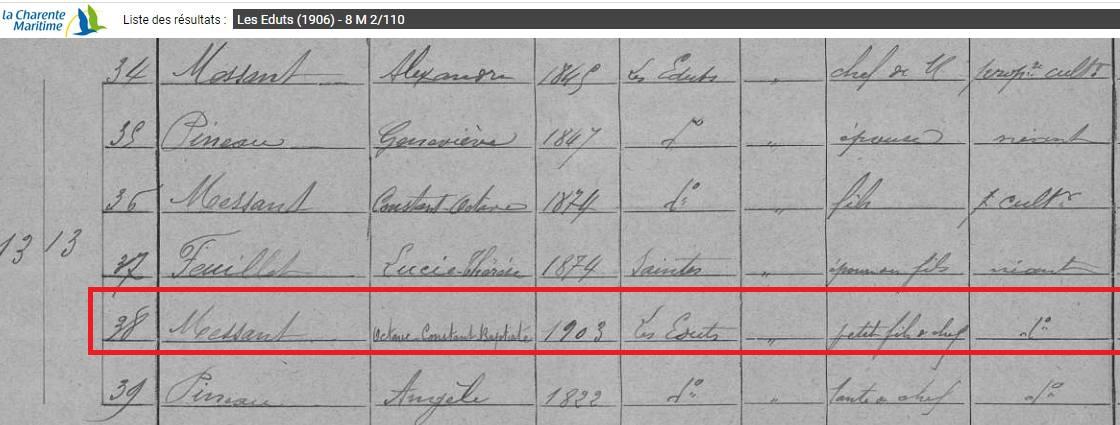 la Charente
Maritime
Liste des résultats : Les Eduts (1906) - 8 M 2/110
34 Messant Alexandre 1845 Les Eduts " chef de M propre cultr
35 Pineau Geneviève 1847 do " épouse néant
36 Messant Constant-Octave 1874 do " fils p. cultr
13 13
37 Feuillet Lucie-Thérèse 1874 Saintes " épouse au fils néant
38 Messant Octave-Constant-Baptiste 1903 Les Eduts " petit fils o chef do
39 Pineau Angèle 1822 do " tante o chef do